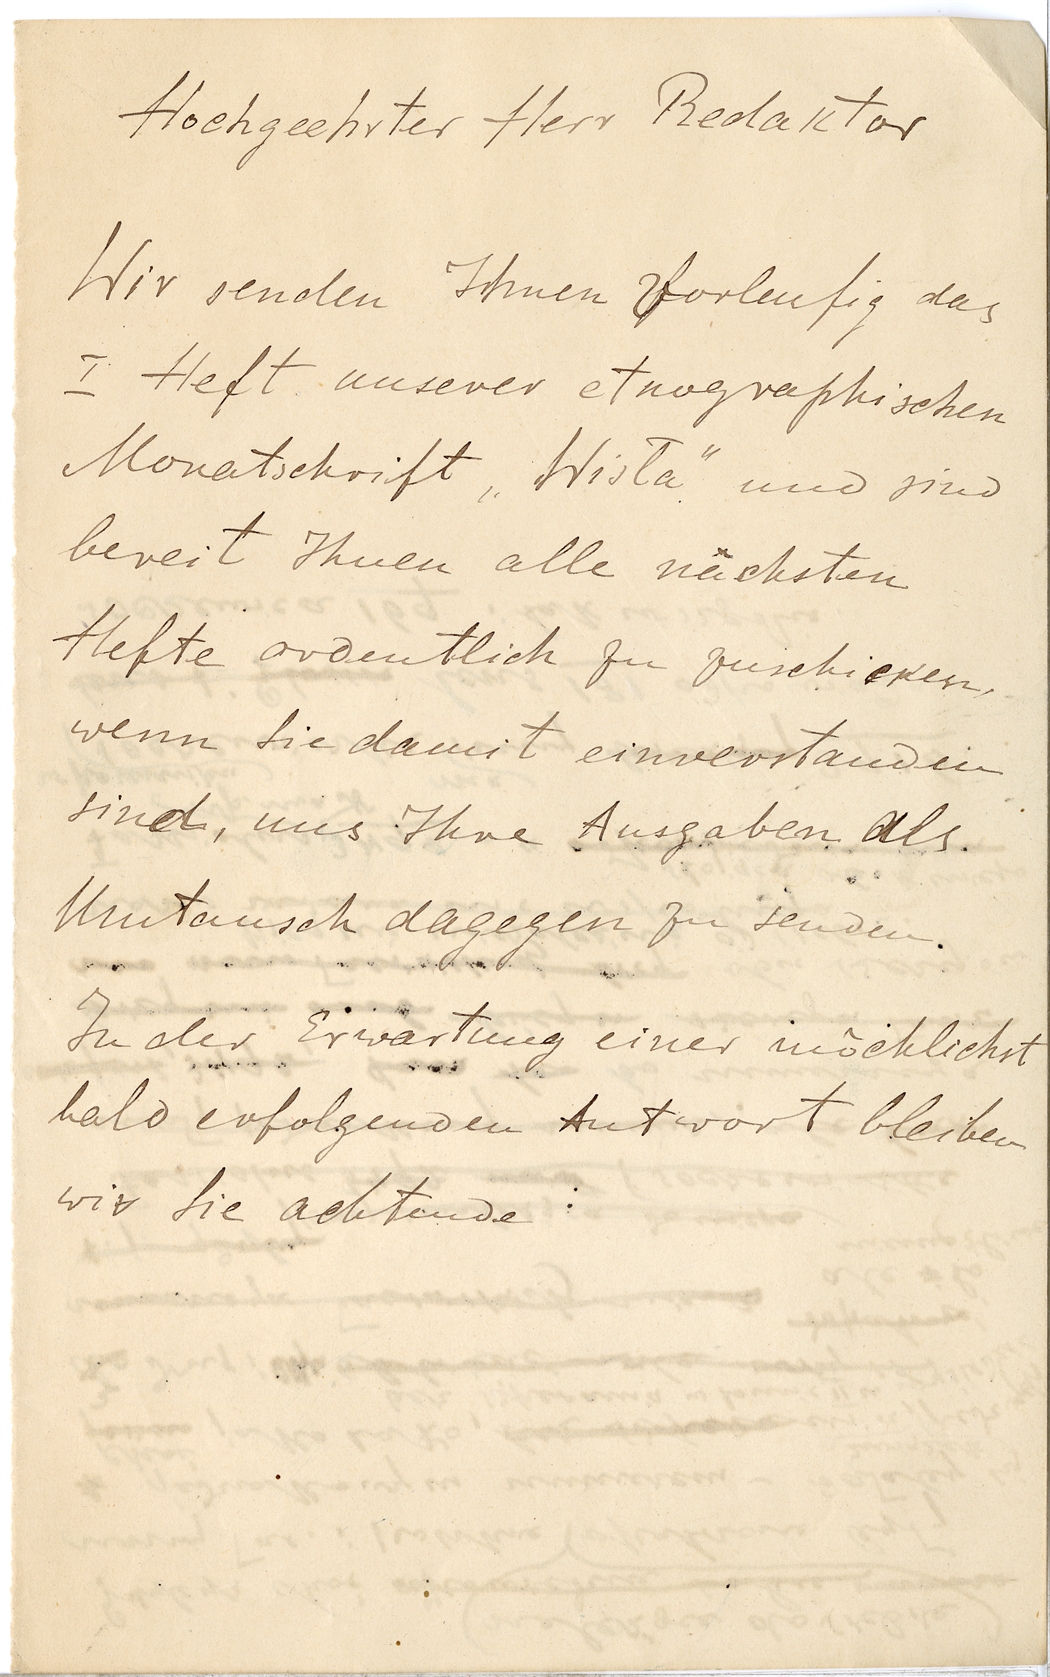 Hochgeehrter Herr Redaktor
Wir senden Ihnen vorleufig das
I Heft unserer etnographischen
Monatschrift „Wisła“ und sind
bereit Ihnen alle nächsten
Hefte ordentlich zu zuschicken,
wenn Sie damit einverstanden
sind, uns Ihre Ausgaben als
Umtausch dagegen zu senden.
In der Erwartung einer möchlichst
bald erfolgenden Antwort bleiben
wir Sie achtende :